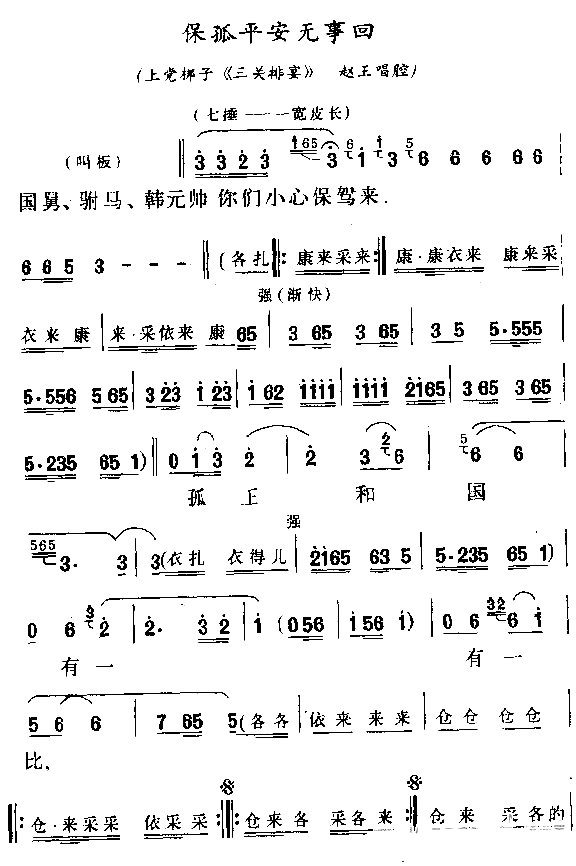 保孤平安无事回
(上党梆子《三关排宴》 赵王唱腔)
(七捶——宽皮长)
(叫板) 3 3 2 3 1 65 3 6 1 1 3 5 6 6 6 6 6
国舅、驸马、韩元帅 你们小心保驾来.
6 6 5 3 - - - (各扎 康来采来 康·康衣来 康来采
强(渐快)
衣来康 来·采依来 康65 3 65 3 65 3 5 5·555
5·556 5 65 3 23 1 23 1 62 1111 1111 2165 3 65 3 65
5·235 65 1) 0 1 3 2 2 3 2 6 5 6 6
孤 王 和 国
强
565 3· 3 3(衣扎 衣得儿 2165 63 5 5·235 65 1)
0 6 3 2 2· 3 2 1 (0 56 1 56 1) 0 6 32 6 1
有一 有一
5 6 6 7 65 5(各各 依来 来来 仓仓 仓仓
比,
仓·来采采 依采采 仓来各 采各来 仓来 采各的